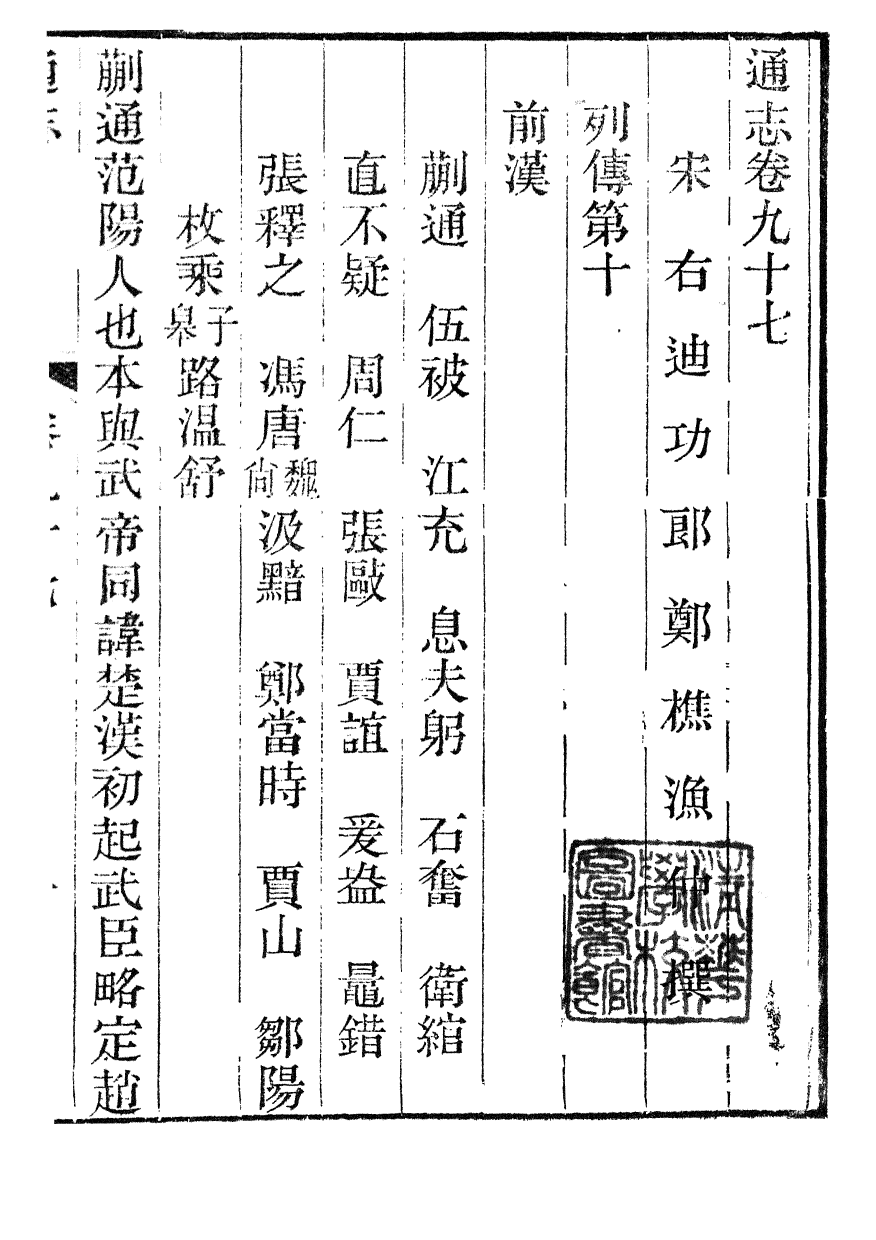 通志卷九十七
宋右迪功郎鄭樵漁仲撰
列傳第十
前漢
蒯通 伍被 江充 息夫躬 石奮 衛綰
直不疑 周仁 張敺 賈誼 爰盎 鼂錯
張釋之 馮唐魏尙 汲黯 鄭當時 賈山 鄒陽
枚乘子皋 路溫舒
蒯通范陽人也本與武帝同諱楚漢初起武臣略定趙
清華學校圖書館